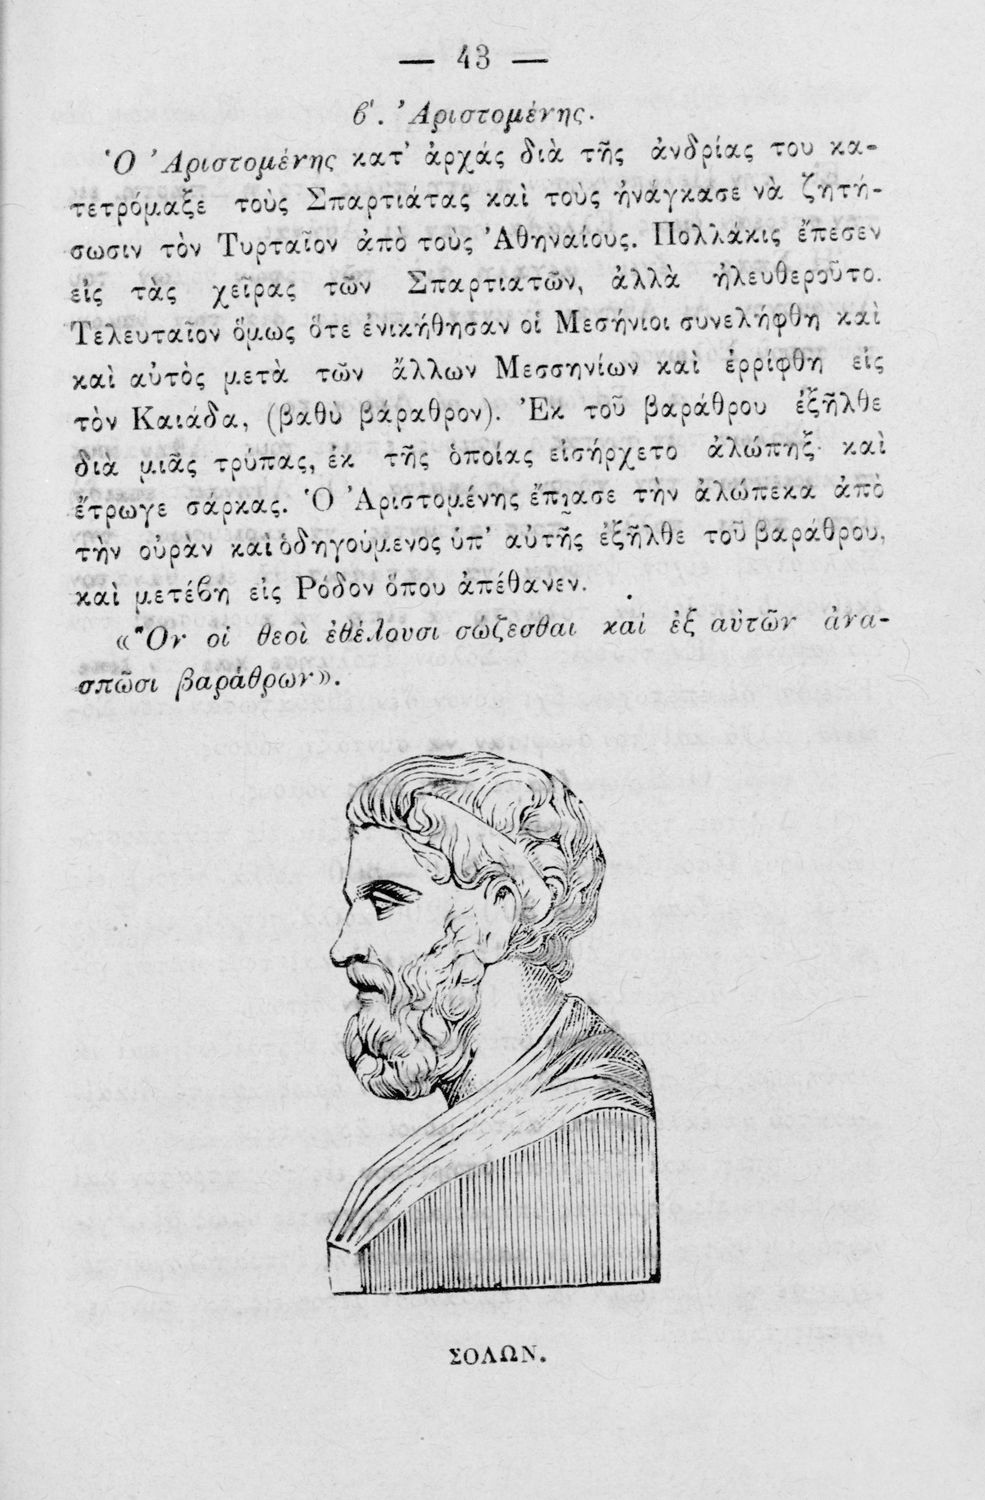 — 43 —
β'. Ἀριστομένης.
Ὁ Ἀριστομένης κατ' ἀρχάς διὰ τῆς ἀνδρίας του κα-
τετρόμαξε τοὺς Σπαρτιάτας καὶ τοὺς ἠνάγκασε νὰ ζητή-
σωσιν τὸν Τυρταῖον ἀπὸ τοὺς Ἀθηναίους. Πολλάκις ἔπεσεν
εἰς τὰς χεῖρας τῶν Σπαρτιατῶν, ἀλλὰ ἠλευθεροῦτο.
Τελευταῖον ὅμως ὅτε ἐνικήθησαν οἱ Μεσήνιοι συνελήφθη καὶ
καὶ αὐτὸς μετὰ τῶν ἄλλων Μεσσηνίων καὶ ἐρρίφθη εἰς
τὸν Καιάδα, (βαθὺ βάραθρον). Ἐκ τοῦ βαράθρου ἐξῆλθε
διὰ μιᾶς τρύπας, ἐκ τῆς ὁποίας εἰσήρχετο ἀλώπηξ καὶ
ἔτρωγε σάρκας. Ὁ Ἀριστομένης ἔπιασε τὴν ἀλώπεκα ἀπὸ
τὴν οὐρὰν καὶ ὁδηγούμενος ὑπ' αὐτῆς ἐξῆλθε τοῦ βαράθρου,
καὶ μετέβη εἰς Ρόδον ὅπου ἀπέθανεν.
«Ὃν οἱ θεοὶ ἐθέλουσι σώζεσθαι καὶ ἐξ αὐτῶν ἀνα-
σπῶσι βαράθρων».
ΣΟΛΩΝ.